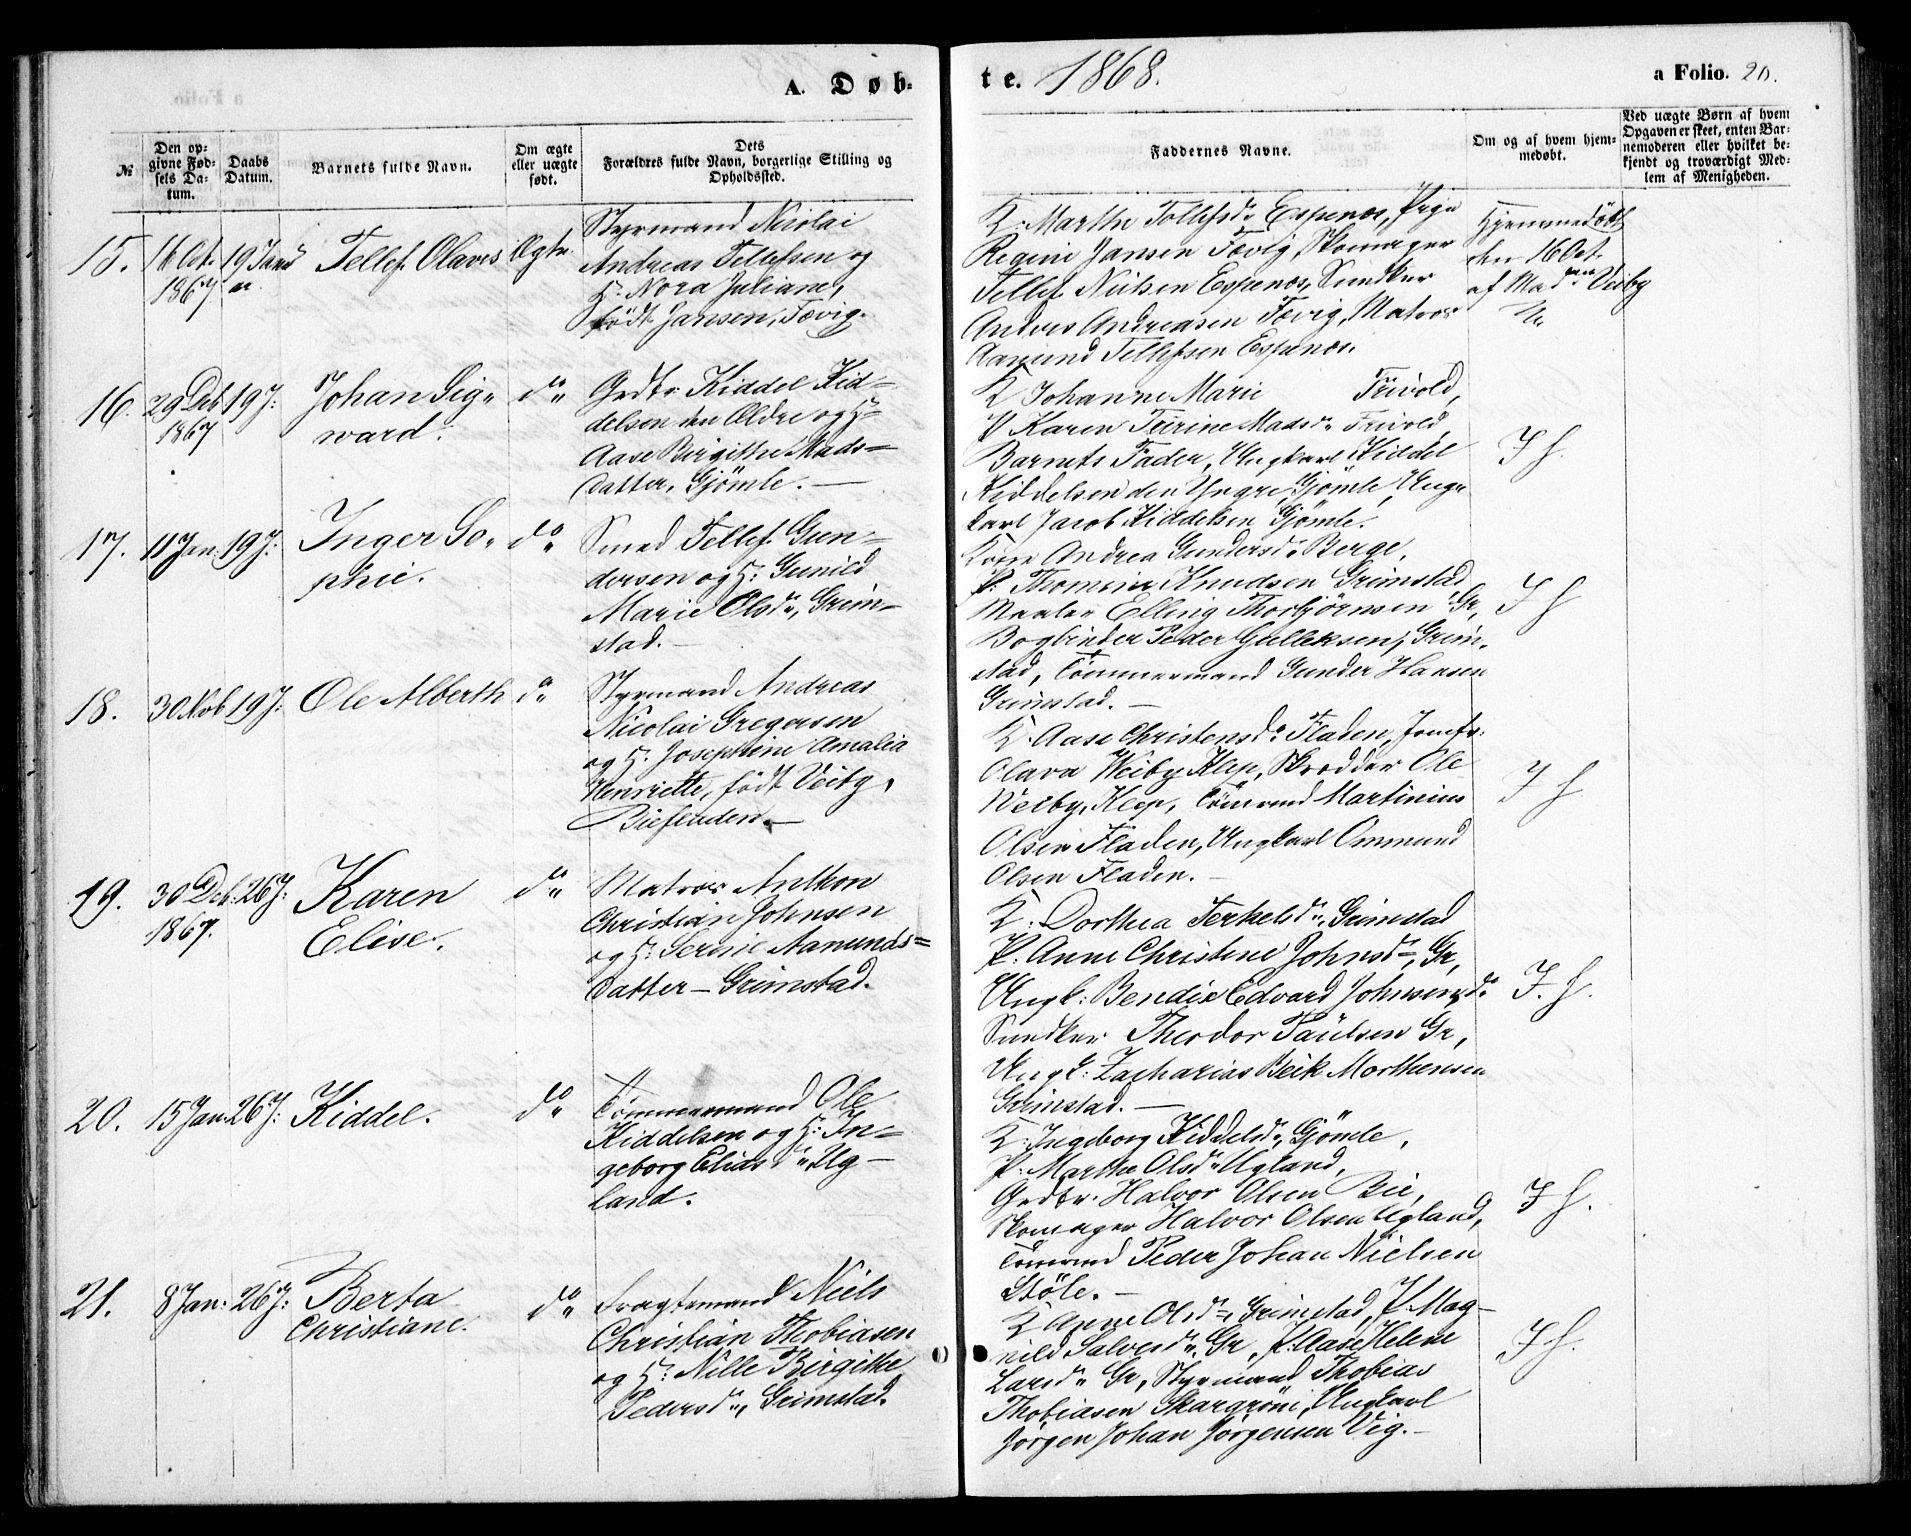 A. Døb-
te. 1868.
a Folio. 20.
№
Den op-
givne Fød-
sels Da-
tum.
Daabs
Datum.
Barnets fulde Navn.
Om ægte
eller uægte
født.
Dets
Forældres fulde Navn, borgerlige Stilling og
Opholdssted.
Faddernes Navne.
Om og af hvem hjem-
medøbt.
Ved uægte Børn af hvem
Opgaven er skeet, enten Bar-
nemoderen eller hvilket be-
kjendt og troværdigt Med-
lem af Menigheden.
15.
16 Oct.
1867
19 Janu
ar
Tellef Olaves
Ægte
Styrmand Nicolai
Andreas Tellefsen og
H. Nora Juliane,
født Jansen, Fævig.
K. Marthe Tollefsdr Espenæs, Pige
Regine Jansen Fævig, Skomager
Tellef Nielsen Espenæs, Snedker
Anders Andreasen Fævig, Matros
Aanund Tellefsen Espenæs.
Hjemmedöbt
den 16 Oct.
af Mad Veiby
16.
29 Deb
1867
19 J:
Johan Sig-
ward.
do
Grdbr Kiddel Kid-
delsen den Ældre og H-
Aase Birgithe Mads-
datter, Gjömle. —
K Johanne Marie Frivold,
P Karen Teirine Madsdr Frivold
Barnets Fader, Ungkarl Kiddel
Kiddelsen den Yngre Gjömle, Ung-
karl Jacob Kiddelsen Gjömle.
J h.
17.
11 Jan:
19 J:
Inger So-
phie.
do
Smed Tellef Gun-
dersen og H: Gunild
Marie Olsdr, Grim-
stad. —
Kone Andrea Gundersdr Berge,
P. Thomine Knudsen Grimstad
Maaler Elling Thorbjörnsen Gr,
Bogbinder Peder Gulleksen, Grim-
stad, Tömmermand Gunder Hansen
Grimstad. —
J h
18.
30 Nob
19 J:
Ole Alberth
do
Styrmand Andreas
Nicolai Gregersen
og H. Josephine Amalia
Henriette, født Veiby,
Biefeldden. —
K. Aase Christensdr Fladen, Jomfr:
Olava Weiby Klep, Skrædder Ole
Weiby, Klep, Tömmand Martinius
Olsen Fladen, Ungkarl Ommund
Olsen Fladen. —
J h
19.
30 Deb:
1867.
26 J:
Karen
Elise.
do
Matros Anthon
Christian Johnsen
og H: Serine Aanunds-
datter — Grimstad.
K: Dorthea Terkelsdr, Grimstad
P. Anne Christine Johnsdr, Gr,
Ungk: Bendix Edvard Johnsen, do
Snedker Theodor Paulsen Gr,
Ungk: Zacharias Beik Morthensen
Grimstad. —
J. h.
20.
15 Jan
26 J:
Kiddel.
do
Tömmermand Ole
Kiddelsen og H: In-
geborg Eliasdr Ug-
land.
K: Ingeborg Kiddelsdr Gjömle,
P. Marthe Olsdr Ugland,
Grdbr. Halvor Olsen Bie,
Skomager Halvor Olsen Ugland,
Tömmand Peder Johan Nielsen
Stöle. —
J h.
21.
8 Jan:
26 J:
Berta
Christiane.
do
Fragtemand Niels
Christian Thobiasen
og H: Nille Birgithe
Pedersdr, Grimstad.
K Anne Olsdr, Grimstad, P. Mag-
nild Salvesdr, Gr, P. Aase Helene
Larsdr Gr, Styrmand Thobias
Thobiasen Skargröni, Ungkarl
Jörgen Johan Jörgensen Vig. —
J h.